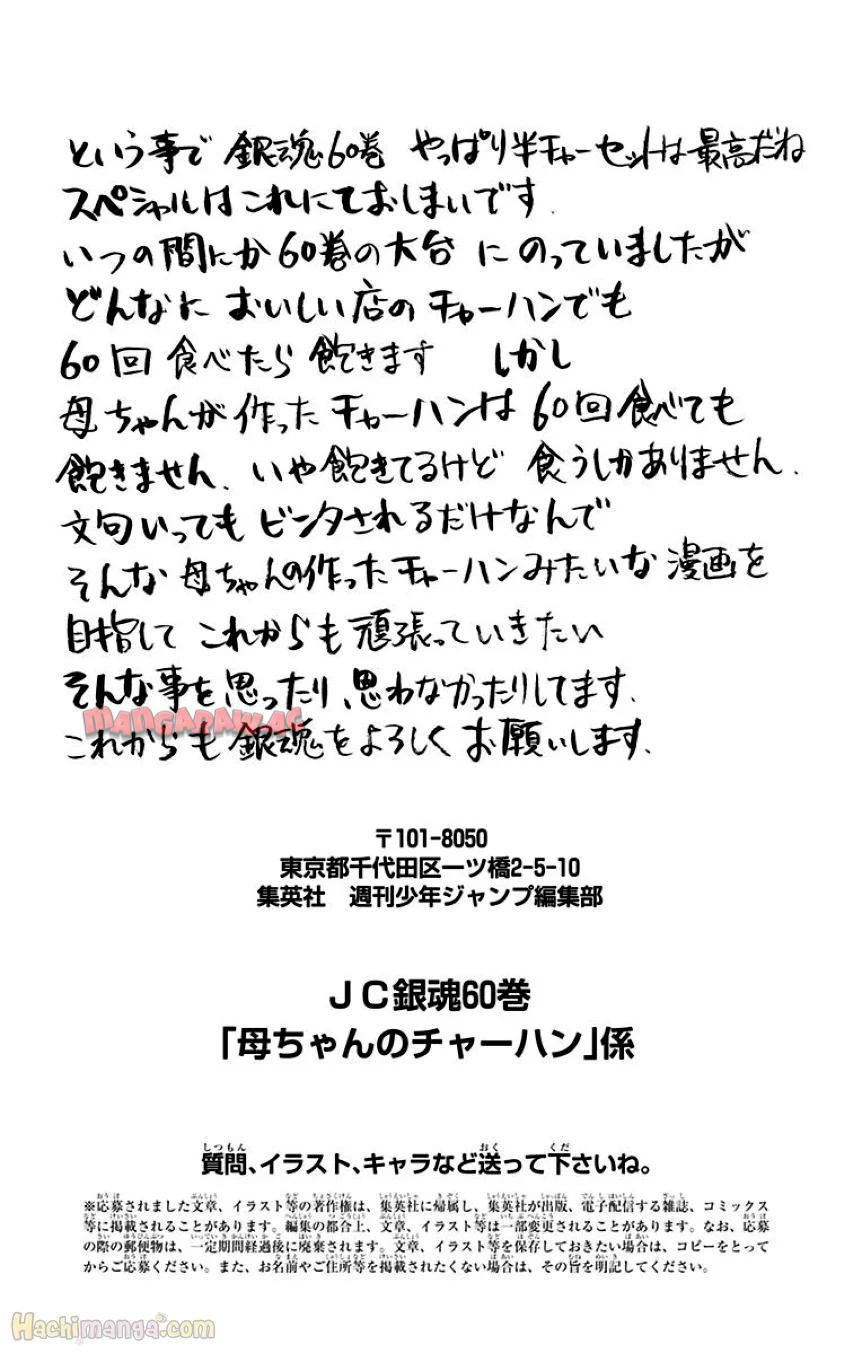 という事で 銀魂60巻 やっぱり半チャーセットは最高だね
スペシャルはこれにておしまいです.
いつの間にか60巻の大台 にのっていましたが
どんなに おいしい店のチャーハンでも
60回食べたら飽きます しかし
母ちゃんが作ったチャーハンは60回食べても
飽きません. いや飽きてるけど 食うしかありません.
文句いってもビンタされるだけなんで
そんな母ちゃんの作ったチャーハンみたいな漫画を
目指して これからも頑張っていきたい
そんな事を思ったり、思わなかったりしてます.
MANGARAW.AC
これからも銀魂をよろしくお願いします.
〒101-8050
東京都千代田区一ツ橋2-5-10
集英社 週刊少年ジャンプ編集部
JC銀魂60巻
「母ちゃんのチャーハン」係
質問、イラスト、キャラなど送って下さいね。
※応募されました文章、イラスト等の著作権は、集英社に帰属し、集英社が出版、電子配信する雑誌、コミックス
等に掲載されることがあります。編集の都合上、文章、イラスト等は一部変更されることがあります。なお、応募
の際の郵便物は、一定期間経過後に廃棄されます。文章、イラスト等を保存しておきたい場合は、コピーをとって
からご応募ください。また、お名前やご住所等を掲載されたくない場合は、その旨を明記してください。
Hachimanga.com